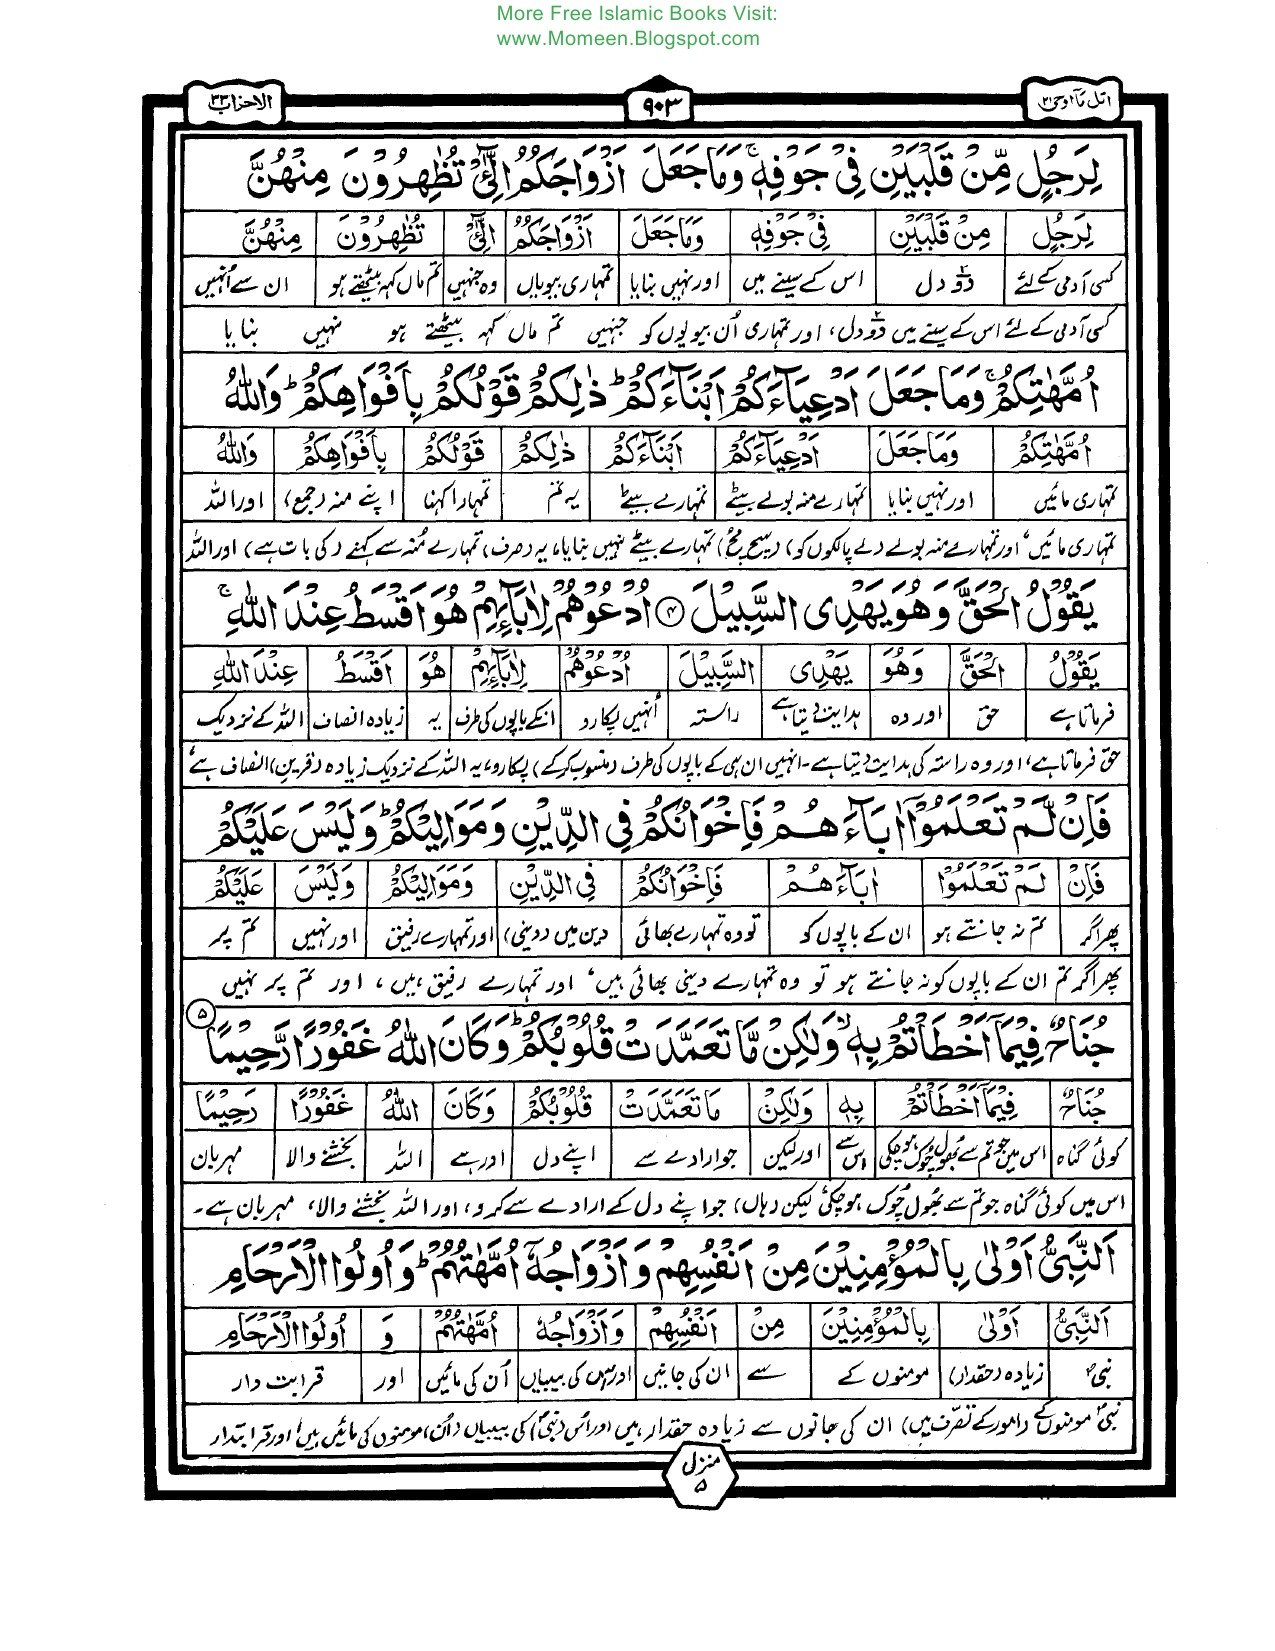 More Free Islamic Books Visit:
www.Momeen.Blogspot.com
اتل مآ اوحی ۲۱
۹۰۳
الاحزاب ۳۳
لِرَجُلٍ مِّنْ قَلْبَيْنِ فِيْ جَوْفِهٖ ۚ وَمَا جَعَلَ اَزْوَاجَكُمُ الّٰٓئِيْ تُظٰهِرُوْنَ مِنْهُنَّ
لِرَجُلٍ | مِنْ قَلْبَيْنِ | فِيْ جَوْفِهٖ | وَمَا جَعَلَ | اَزْوَاجَكُمُ | الّٰٓئِيْ | تُظٰهِرُوْنَ | مِنْهُنَّ
کسی آدمی کے لئے | دو دل | اس کے سینے میں | اور نہیں بنایا | تمہاری بیویاں | وہ جنہیں | تم ماں کہہ بیٹھتے ہو | ان سے اُنہیں
کسی آدمی کے لئے اس کے سینے میں دو دل، اور تمہاری اُن بیویوں کو جنہیں تم ماں کہہ بیٹھتے ہو نہیں بنایا
اُمَّهٰتِكُمْ ۚ وَمَا جَعَلَ اَدْعِيَآءَكُمْ اَبْنَآءَكُمْ ؕ ذٰلِكُمْ قَوْلُكُمْ بِاَفْوَاهِكُمْ ؕ وَاللّٰهُ
اُمَّهٰتِكُمْ | وَمَا جَعَلَ | اَدْعِيَآءَكُمْ | اَبْنَآءَكُمْ | ذٰلِكُمْ | قَوْلُكُمْ | بِاَفْوَاهِكُمْ | وَاللّٰهُ
تمہاری مائیں | اور نہیں بنایا | تمہارے منہ بولے بیٹے | تمہارے بیٹے | یہ تم | تمہارا کہنا | اپنے منہ (جمع) | اور اللہ
تمہاری مائیں، اور تمہارے منہ بولے لے پالکوں کو (سچ مچ) تمہارے بیٹے نہیں بنایا، یہ (صرف) تمہارے مُنہ سے کہنے (کی بات ہے) اور اللہ
يَقُوْلُ الْحَقَّ وَهُوَ يَهْدِى السَّبِيْلَ ۴ اُدْعُوْهُمْ لِاٰبَآئِهِمْ هُوَ اَقْسَطُ عِنْدَ اللّٰهِ ۚ
يَقُوْلُ | الْحَقَّ | وَهُوَ | يَهْدِى | السَّبِيْلَ | اُدْعُوْهُمْ | لِاٰبَآئِهِمْ | هُوَ | اَقْسَطُ | عِنْدَ اللّٰهِ
فرماتا ہے | حق | اور وہ | ہدایت دیتا ہے | راستہ | اُنہیں پکارو | انکے باپوں کی طرف | یہ | زیادہ انصاف | اللہ کے نزدیک
حق فرماتا ہے، اور وہ راستہ کی ہدایت دیتا ہے۔ انہیں ان ہی کے باپوں کی طرف (منسوب کرکے) پکارو، یہ اللہ کے نزدیک زیادہ (قرین) انصاف ہے،
فَاِنْ لَّمْ تَعْلَمُوْٓا اٰبَآءَهُمْ فَاِخْوَانُكُمْ فِى الدِّيْنِ وَمَوَالِيْكُمْ ؕ وَلَيْسَ عَلَيْكُمْ
فَاِنْ | لَمْ تَعْلَمُوْٓا | اٰبَآءَهُمْ | فَاِخْوَانُكُمْ | فِى الدِّيْنِ | وَمَوَالِيْكُمْ | وَلَيْسَ | عَلَيْكُمْ
پھر اگر | تم نہ جانتے ہو | ان کے باپوں کو | تو وہ تمہارے بھائی | دین میں (دینی) | اور تمہارے رفیق | اور نہیں | تم پر
پھر اگر تم ان کے باپوں کو نہ جانتے ہو تو وہ تمہارے دینی بھائی ہیں، اور تمہارے رفیق ہیں، اور تم پر نہیں
جُنَاحٌ فِيْمَآ اَخْطَاْتُمْ بِهٖ ۙ وَلٰكِنْ مَّا تَعَمَّدَتْ قُلُوْبُكُمْ ؕ وَكَانَ اللّٰهُ غَفُوْرًا رَّحِيْمًا ۵
جُنَاحٌ | فِيْمَآ اَخْطَاْتُمْ | بِهٖ | وَلٰكِنْ | مَا تَعَمَّدَتْ | قُلُوْبُكُمْ | وَكَانَ | اللّٰهُ | غَفُوْرًا | رَحِيْمًا
کوئی گناہ | اس میں جو تم سے بھول چوک ہو چکی | اس سے | اور لیکن | جو ارادے سے | اپنے دل | اور ہے | اللہ | بخشنے والا | مہربان
اس میں کوئی گناہ جو تم سے بھول چوک ہو چکی لیکن (ہاں) جو اپنے دل کے ارادے سے کرو، اور اللہ بخشنے والا، مہربان ہے۔
اَلنَّبِيُّ اَوْلٰى بِالْمُؤْمِنِيْنَ مِنْ اَنْفُسِهِمْ وَاَزْوَاجُهٗٓ اُمَّهٰتُهُمْ ؕ وَاُولُوا الْاَرْحَامِ
اَلنَّبِيُّ | اَوْلٰى | بِالْمُؤْمِنِيْنَ | مِنْ | اَنْفُسِهِمْ | وَاَزْوَاجُهٗ | اُمَّهٰتُهُمْ | وَ | اُولُوا الْاَرْحَامِ
نبیؐ | زیادہ (حقدار) | مومنوں کے | سے | ان کی جانیں | اور اس کی بیبیاں | اُن کی مائیں | اور | قرابت دار
نبیؐ مومنوں کے (امور کے تصرّف میں) ان کی جانوں سے زیادہ حقدار ہیں اور اُس (نبیؐ) کی بیبیاں (اُن) مومنوں کی مائیں ہیں، اور قرابتدار
منزل ۵